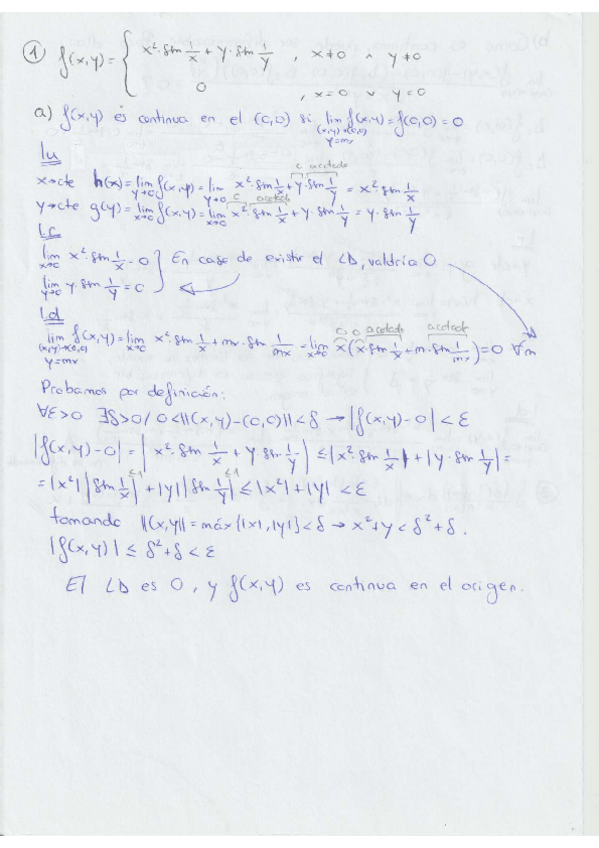 ① f(x,y) = { x²·sen 1/x + y·sen 1/y , x≠0 ∧ y≠0
0 , x=0 ∨ y=0
a) f(x,y) es continua en el (0,0) si lim (x,y)→(0,0) y=mx f(x,y) = f(0,0) = 0
c. acotado
x→cte h(x) = lim y→0 f(x,y) = lim y→0 x²·sen 1/x + y·sen 1/y = x²·sen 1/x
c acotado
y→cte g(y) = lim x→0 f(x,y) = lim x→0 x²·sen 1/x + y·sen 1/y = y·sen 1/y
lim x→0 x²·sen 1/x = 0 } En caso de existir el LD, valdría 0
lim y→0 y·sen 1/y = 0
Ld
0 0 acotado acotado
lim (x,y)→(0,0) y=mx f(x,y) = lim x→0 x²·sen 1/x + mx·sen 1/mx = lim x→0 x(x·sen 1/x + m·sen 1/mx) = 0 ∀m
Probamos por definición:
∀ε>0 ∃δ>0 / 0<||(x,y)-(0,0)||<δ → |f(x,y)-0| < ε
|f(x,y)-0| = | x²·sen 1/x + y·sen 1/y | ≤ |x²·sen 1/x| + |y·sen 1/y| =
= |x²| |sen 1/x| ≤1 + |y| |sen 1/y| ≤1 ≤ |x²| + |y| < ε
tomando ||(x,y|| = máx{|x|,|y|}<δ → x²+y < δ²+δ.
|f(x,y)| ≤ δ²+δ < ε
El LD es 0, y f(x,y) es continua en el origen.